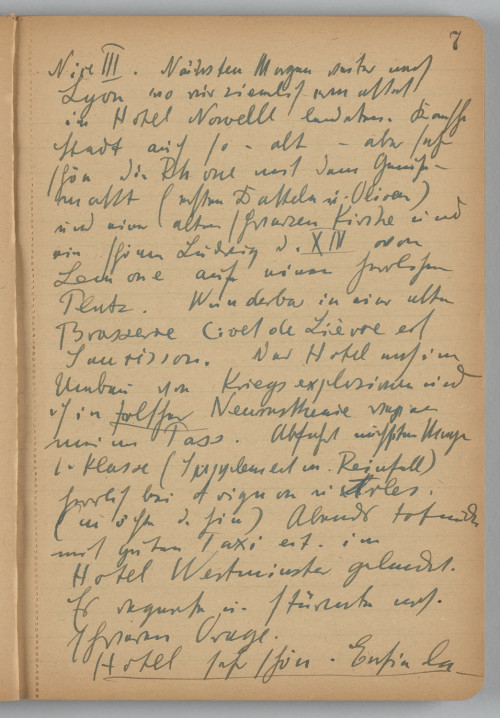 7
Nice III. Nächsten Morgen weiter nach
Lyon wo wir ziemlich ermattet
im Hotel Nowelle landeten.
Stadt auch so - alt - aber sehr
schön die Rhone mit dem Gemüse-
markt (ersten Datteln u. Oliven)
und einer alten schwarzen Kirche und
ein schöner Ludwig d. XIV von
Lemone auf einem herrlichen
Platz. Wunderbar in einer alten
Brasserie Civet de Lièvre et
Saucisson. Das Hotel noch im
Umbau von Kriegsexplosionen und
ich in Neurasthenie wegen
meinem Pass. Abfahrt nächsten Morgen
1. Klasse (Supplement m. Reinfall)
herrlich bei Avignon u. Arles.
(möchte d. hin) Abends totmüde
mit gutem Taxi etc. im
Hotel Westminster gelandet.
Es regnete u. stürmte nach
schwerem Orage.
Hotel sehr schön. Enfin la